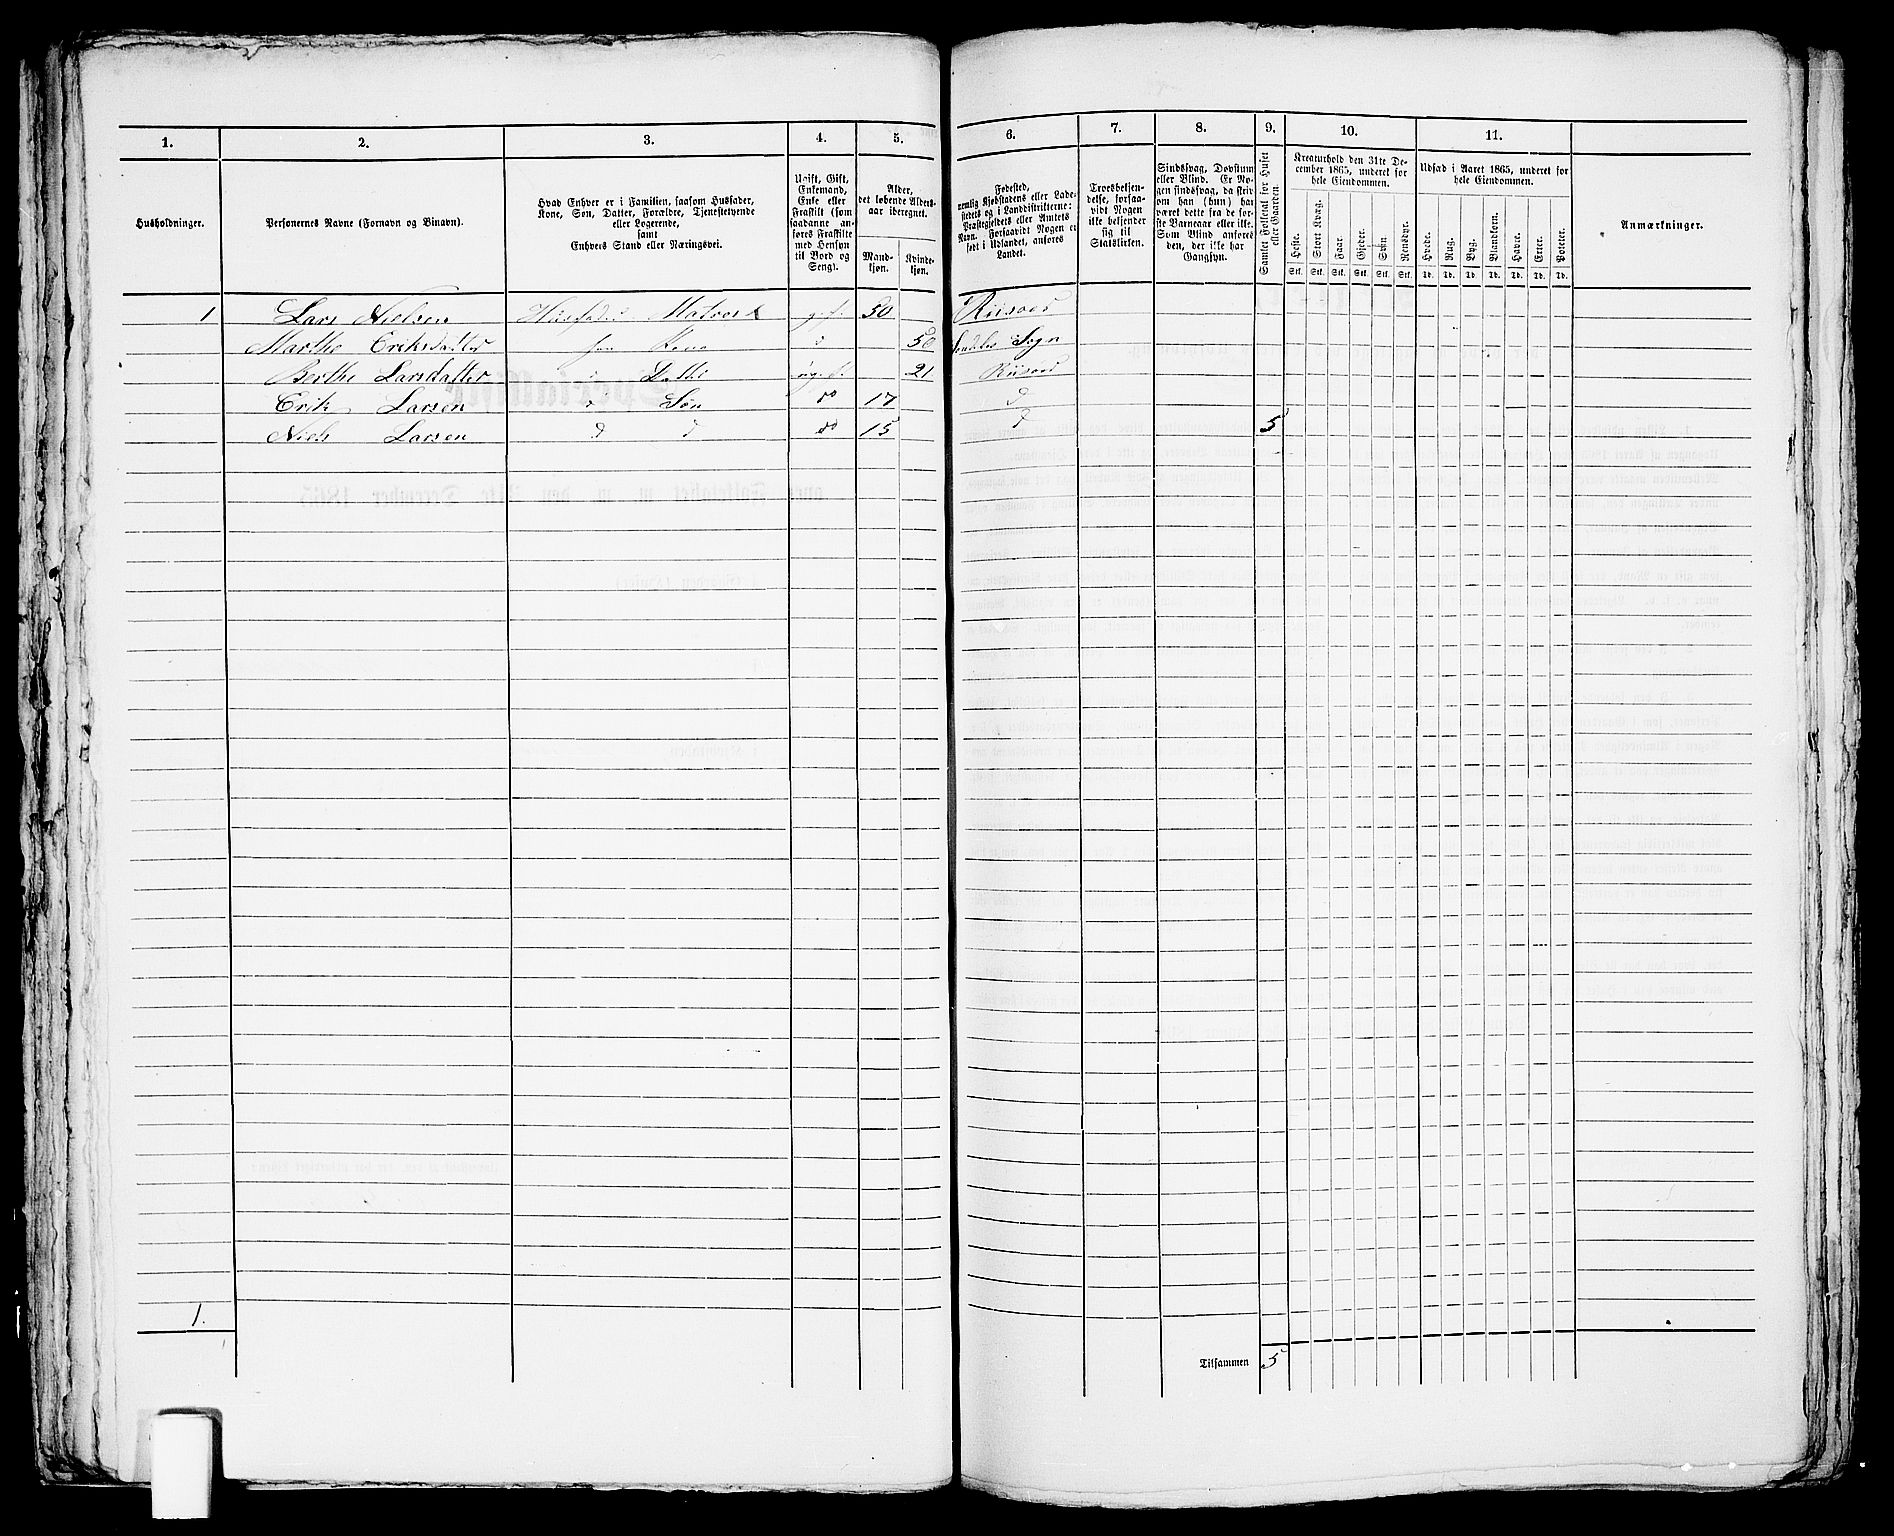 1. 2. 3. 4. 5. 6. 7. 8. 9. 10. 11.
Husholdninger.
Personernes Navne (Fornavn og Binavn).
Hvad Enhver er i Familien, saasom Husfader,
Kone, Søn, Datter, Forældre, Tjenestetyende
eller Logerende,
samt
Enhvers Stand eller Næringsvei.
Ugift, Gift,
Enkemand,
Enke eller
Fraskilt (som
saadanne an-
føres Fraskilte
med Hensyn
til Bord og
Seng).
Alder,
det løbende Alders-
aar iberegnet.
Mand-
kjøn.
Kvinde-
kjøn.
Fødested,
nemlig Kjøbstadens eller Lade-
stedets og i Landdistrikterne:
Præstegjeldets eller Amtets
Navn. Forsaavidt Nogen er
født i Udlandet, anføres
Landet.
Troesbekjen-
delse, forsaa-
vidt Nogen
ikke bekjender
sig til
Statskirken.
Sindssvag, Døvstum
eller Blind. Er No-
gen sindssvag, da skriv
om han (hun) har
været dette fra de før-
ste Barneaar eller ikke.
Som Blind anføres
den, der ikke har
Gangsyn.
Samlet Folketal for Huset
eller Gaarden.
Kreaturhold den 31te De-
cember 1865, underet for
hele Eiendommen.
Heste. Stort Kvæg. Faar. Gjeder. Svin Rensdyr.
Stk. Stk. Stk. Stk. Stk. Stk.
Udsæd i Aaret 1865, underet for
hele Eiendommen.
Hvede. Rug. Byg. Blandkorn. Havre. Erter. Poteter.
Td. Td. Td. Td. Td. Td. Td.
Anmærkninger.
1 Lars Nielsen Husfader 50 Riisøer
Marthe Eriksdatter Kone 50 Sogn
Berthe Larsdatter 21 Riisøer
Erik Larsen Søn 17
Niels Larsen 15 5
1.
Tilsammen 5